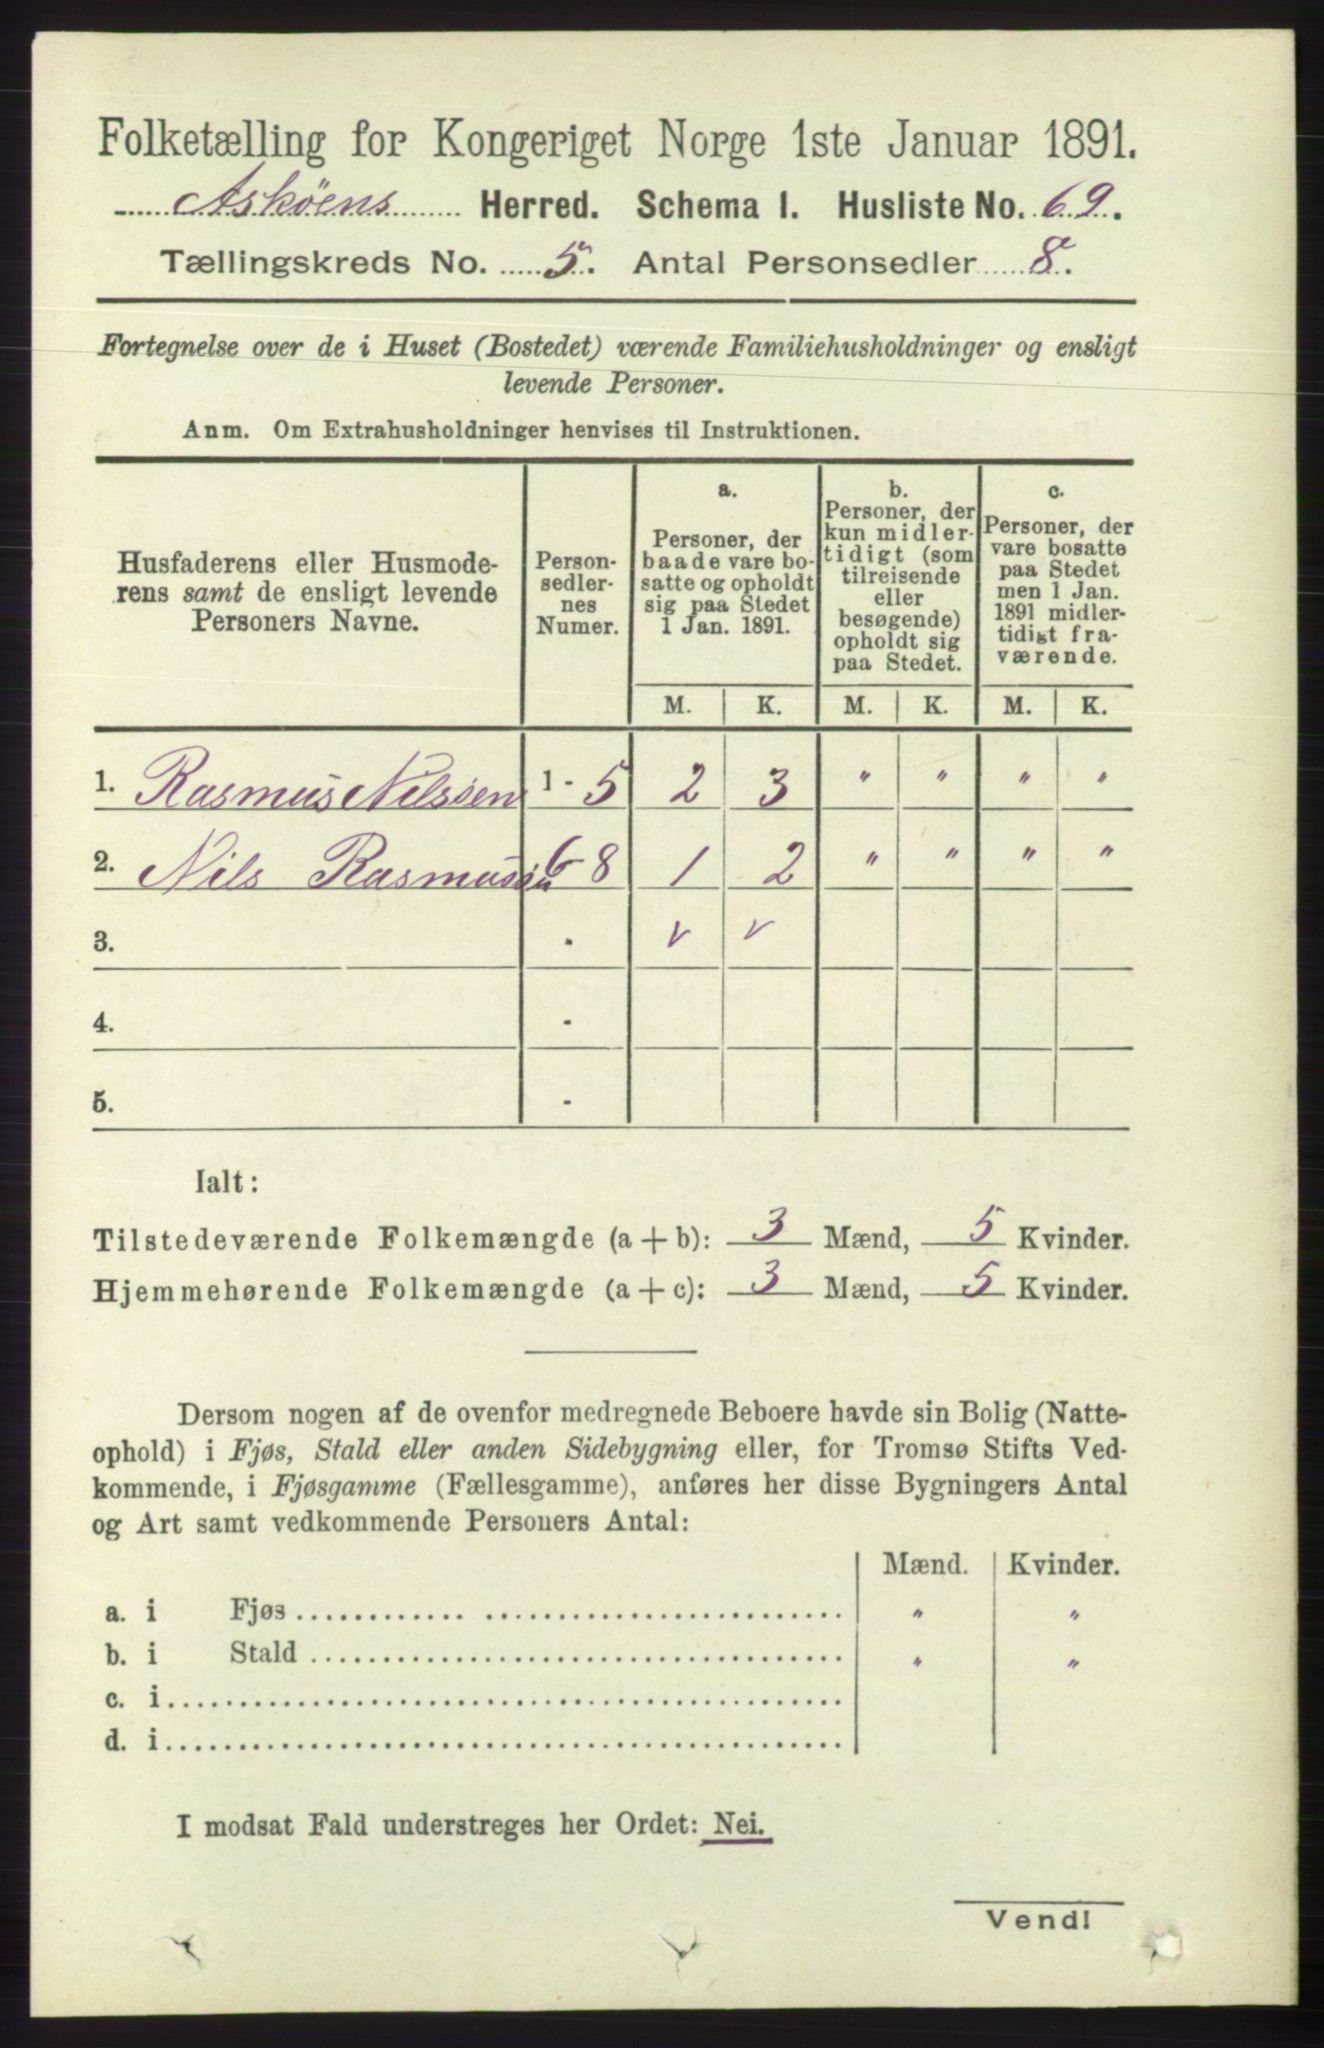 Folketælling for Kongeriget Norge 1ste Januar 1891.
Asköens Herred. Schema I. Husliste No. 69.
Tællingskreds No. 5. Antal Personsedler 8.
Fortegnelse over de i Huset (Bostedet) værende Familiehusholdninger og ensligt
levende Personer.
Anm. Om Extrahusholdninger henvises til Instruktionen.
Husfaderens eller Husmode-
rens samt de ensligt levende
Personers Navne.
Person-
sedler-
nes
Numer.
a.
Personer, der
baade vare bo-
satte og opholdt
sig paa Stedet
1 Jan. 1891.
b.
Personer, der
kun midler-
tidigt (som
tilreisende
eller
besøgende)
opholdt sig
paa Stedet.
c.
Personer, der
vare bosatte
paa Stedet
men 1 Jan.
1891 midler-
tidigt fra-
værende.
M. K. M. K. M. K.
1. Rasmus Nilssen 1 - 5 2 3 " " " "
2. Nils Rasmussen 6 - 8 1 2 " " " "
3. - v v
4. -
5. -
Ialt:
Tilstedeværende Folkemængde (a + b): 3 Mænd, 5 Kvinder.
Hjemmehørende Folkemængde (a + c): 3 Mænd, 5 Kvinder.
Dersom nogen af de ovenfor medregnede Beboere havde sin Bolig (Natte-
ophold) i Fjøs, Stald eller anden Sidebygning eller, for Tromsø Stifts Ved-
kommende, i Fjøsgamme (Fællesgamme), anføres her disse Bygningers Antal
og Art samt vedkommende Personers Antal:
Mænd. Kvinder.
a. i Fjøs " "
b. i Stald " "
c. i
d. i
I modsat Fald understreges her Ordet: Nei.
Vend!